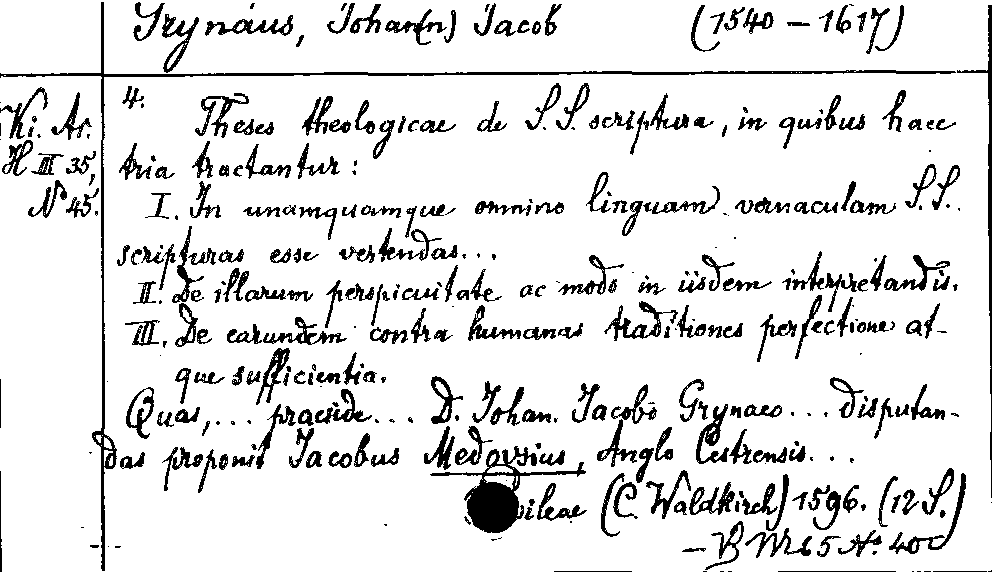 Grynäus, Johan(n) Jacob (1540 – 1617)
Ki. Ar.
H III 35,
No 45.
4. Theses theologicae de S. S. scriptura, in quibus haec
tria tractantur:
I. In unamquamque omnino linguam vernaculam S. S.
scripturas esse vertendas...
II. De illarum perspicuitate ac modo in iisdem interpretandis.
III. De earundem contra humanas traditiones perfectione at-
que sufficientia.
Quas,... praeside... D. Johan. Jacobo Grynaeo... disputan-
das proponit Jacobus Medovsius, Anglo Cestrensis...
ileae (C. Waldkirch) 1596. (12 S.)
– B